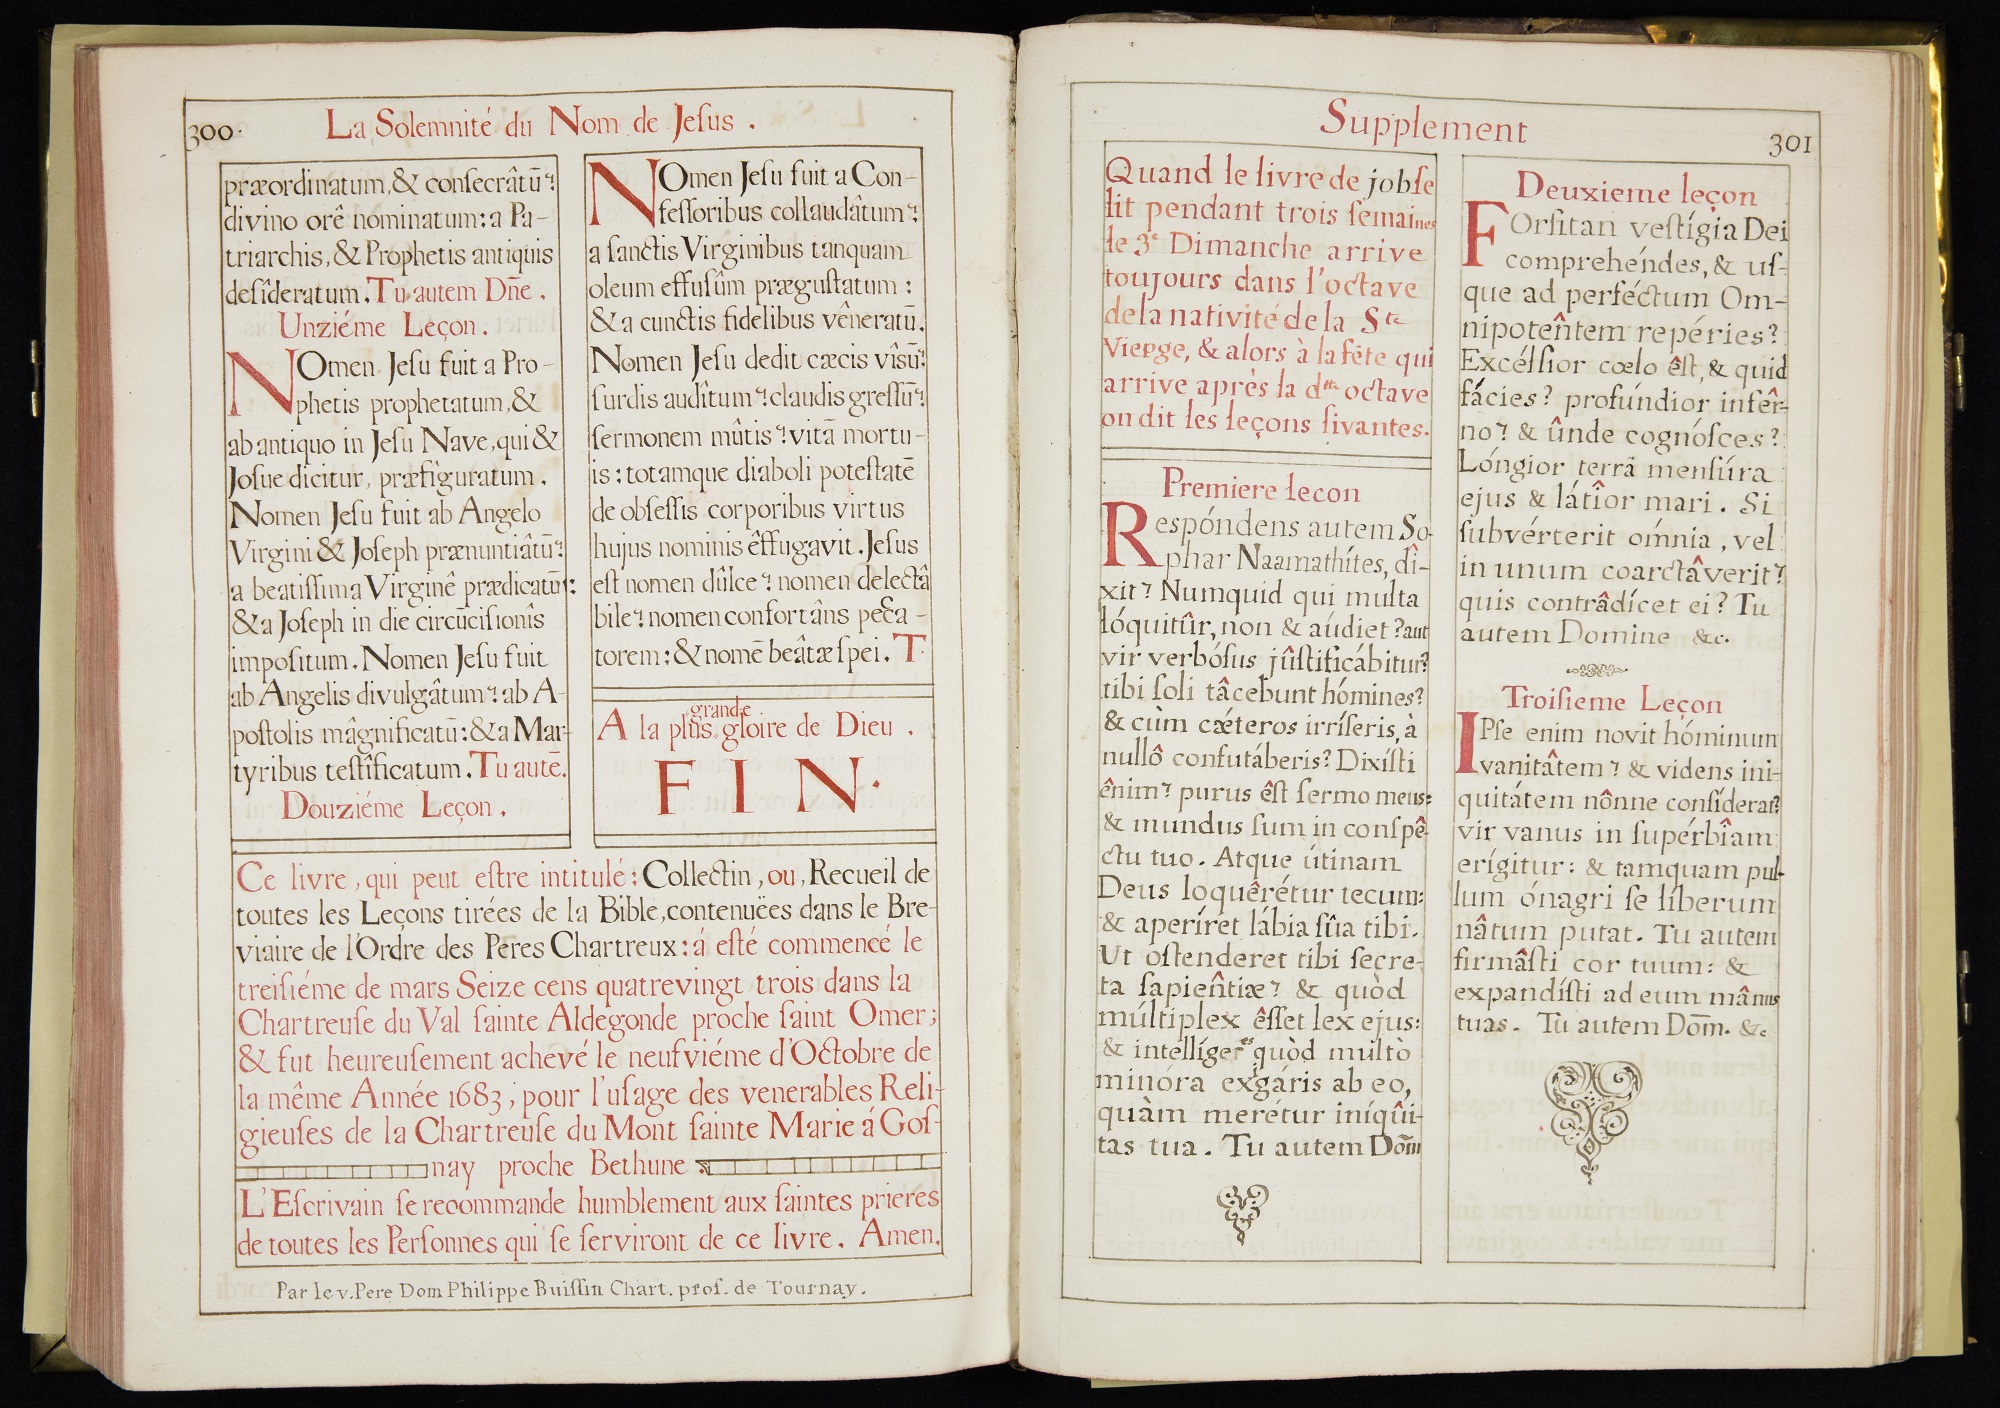 300.
La Solemnité du Nom de Jeſus .
præordinatum, & conſecrâtū⁊
divino orê nominatum: a Pa-
triarchis, & Prophetis antiquis
deſîderatum. Tu autem Dñe .
Unziéme Leçon .
NOmen Jeſu fuit a Pro-
phetis prophetatum, &
ab antiquo in Jeſu Nave, qui &
Joſue dicitur, præfiguratum .
Nomen Jeſu fuit ab Angelo
Virgini & Joſeph prænuntiâtū⁊
a beatiſſima Virginê prædicatū⁊:
& a Joſeph in die circūciſionîs
impoſitum. Nomen Jeſu fuit
ab Angelis divulgâtum⁊ ab A-
poſtolis mâgnificatū: & a Mar-
tyribus teſtîficatum. Tu autē.
Douziéme Leçon .
NOmen Jeſu fuit a Con-
feſſoribus collaudâtum⁊
a ſanctis Virginibus tanquam
oleum effuſûm præguſtatum :
& a cunctis fidelibus vêneratū.
Nomen Jeſu dedit cæcis vîsū⁊
ſurdis audîtum⁊ claudis greſſū⁊
ſermonem mûtis⁊ vitā mortu-
is: totamque diaboli poteſtatē
de obſeſſis corporibus virtus
hujus nominis êffugavit. Jeſus
eſt nomen dûlce⁊ nomen delectâ
bile⁊ nomen confortâns pecca-
torem: & nomē beâtæ ſpei. T.
A la plus grande gloire de Dieu .
FIN.
Ce livre, qui peut eſtre intitulé: Collectin, ou, Recueil de
toutes les Leçons tirées de la Bible, contenuëes dans le Bre-
viaire de l'Ordre des Peres Chartreux: á eſté commencé le
treiſiéme de mars Seize cens quatrevingt trois dans la
Chartreuſe du Val ſainte Aldegonde proche ſaint Omer;
& fut heureuſement achevé le neufviéme d'Octobre de
la même Année 1683; pour l'uſage des venerables Reli-
gieuſes de la Chartreuſe du Mont ſainte Marie á Goſ-
nay proche Bethune
L'Eſcrivain ſe recommande humblement aux ſaintes prieres
de toutes les Perſonnes qui ſe ſerviront de ce livre. Amen.
Par le v. Pere Dom Philippe Buiſſin Chart. prof. de Tournay.
Supplement
301
Quand le livre de job ſe
lit pendant trois ſemaines
le 3e Dimanche arrive
toujours dans l'octave
de la nativité de la Ste
Vierge, & alors à la fête qui
arrive après la dtte octave
on dit les leçons ſivantes.
Premiere lecon
Respóndens autem So-
phar Naamathítes, dî-
xit⁊ Numquid qui multa
lóquitûr, non & aúdiet? aut
vir verbóſus jûſtificábitur?
tibi ſoli tâcebunt hómines?
& cùm cǽteros irríſeris, à
nullô confutáberis? Dixíſti
ênim⁊ purus êſt ſermo meus:
& mundus ſum in conſpê-
ctu tuo. Atque útinam
Deus loquêrétur tecum:
& aperíret lábia ſûa tibi.
Ut oſtenderet tibi ſecre-
ta ſapiêntiæ⁊ & quòd
múltiplex êſſet lex ejus:
& intellígeres quòd multò
minóra exigáris ab eo,
quàm merétur iníqûi-
tas tua. Tu autem Dōm
Deuxieme leçon
FOrſitan veſtígia Dei
comprehéndes, & uſ-
que ad perféctum Om-
nipotêntem repéries?
Excélſior cœlo êſt, & quid
fácies? profúndior infêr-
no⁊ & ûnde cognóſces?
Lóngior terrâ menſúra
ejus & látîor mari. Si
ſubvérterit omnia, vel
in unum coarctâverit⁊
quis contrâdícet ei? Tu
autem Domine &c.
Troiſieme Leçon
IPſe enim novit hóminum
vanitâtem⁊ & videns ini-
quitátem nônne conſíderat?
vir vanus in ſupérbîam
erígitur: & tamquam pul-
lum ónagri ſe líberum
nâtum putat. Tu autem
firmâſti cor tuum: &
expandíſti ad eum mânus
tuas. Tu autem Dōm. &c.